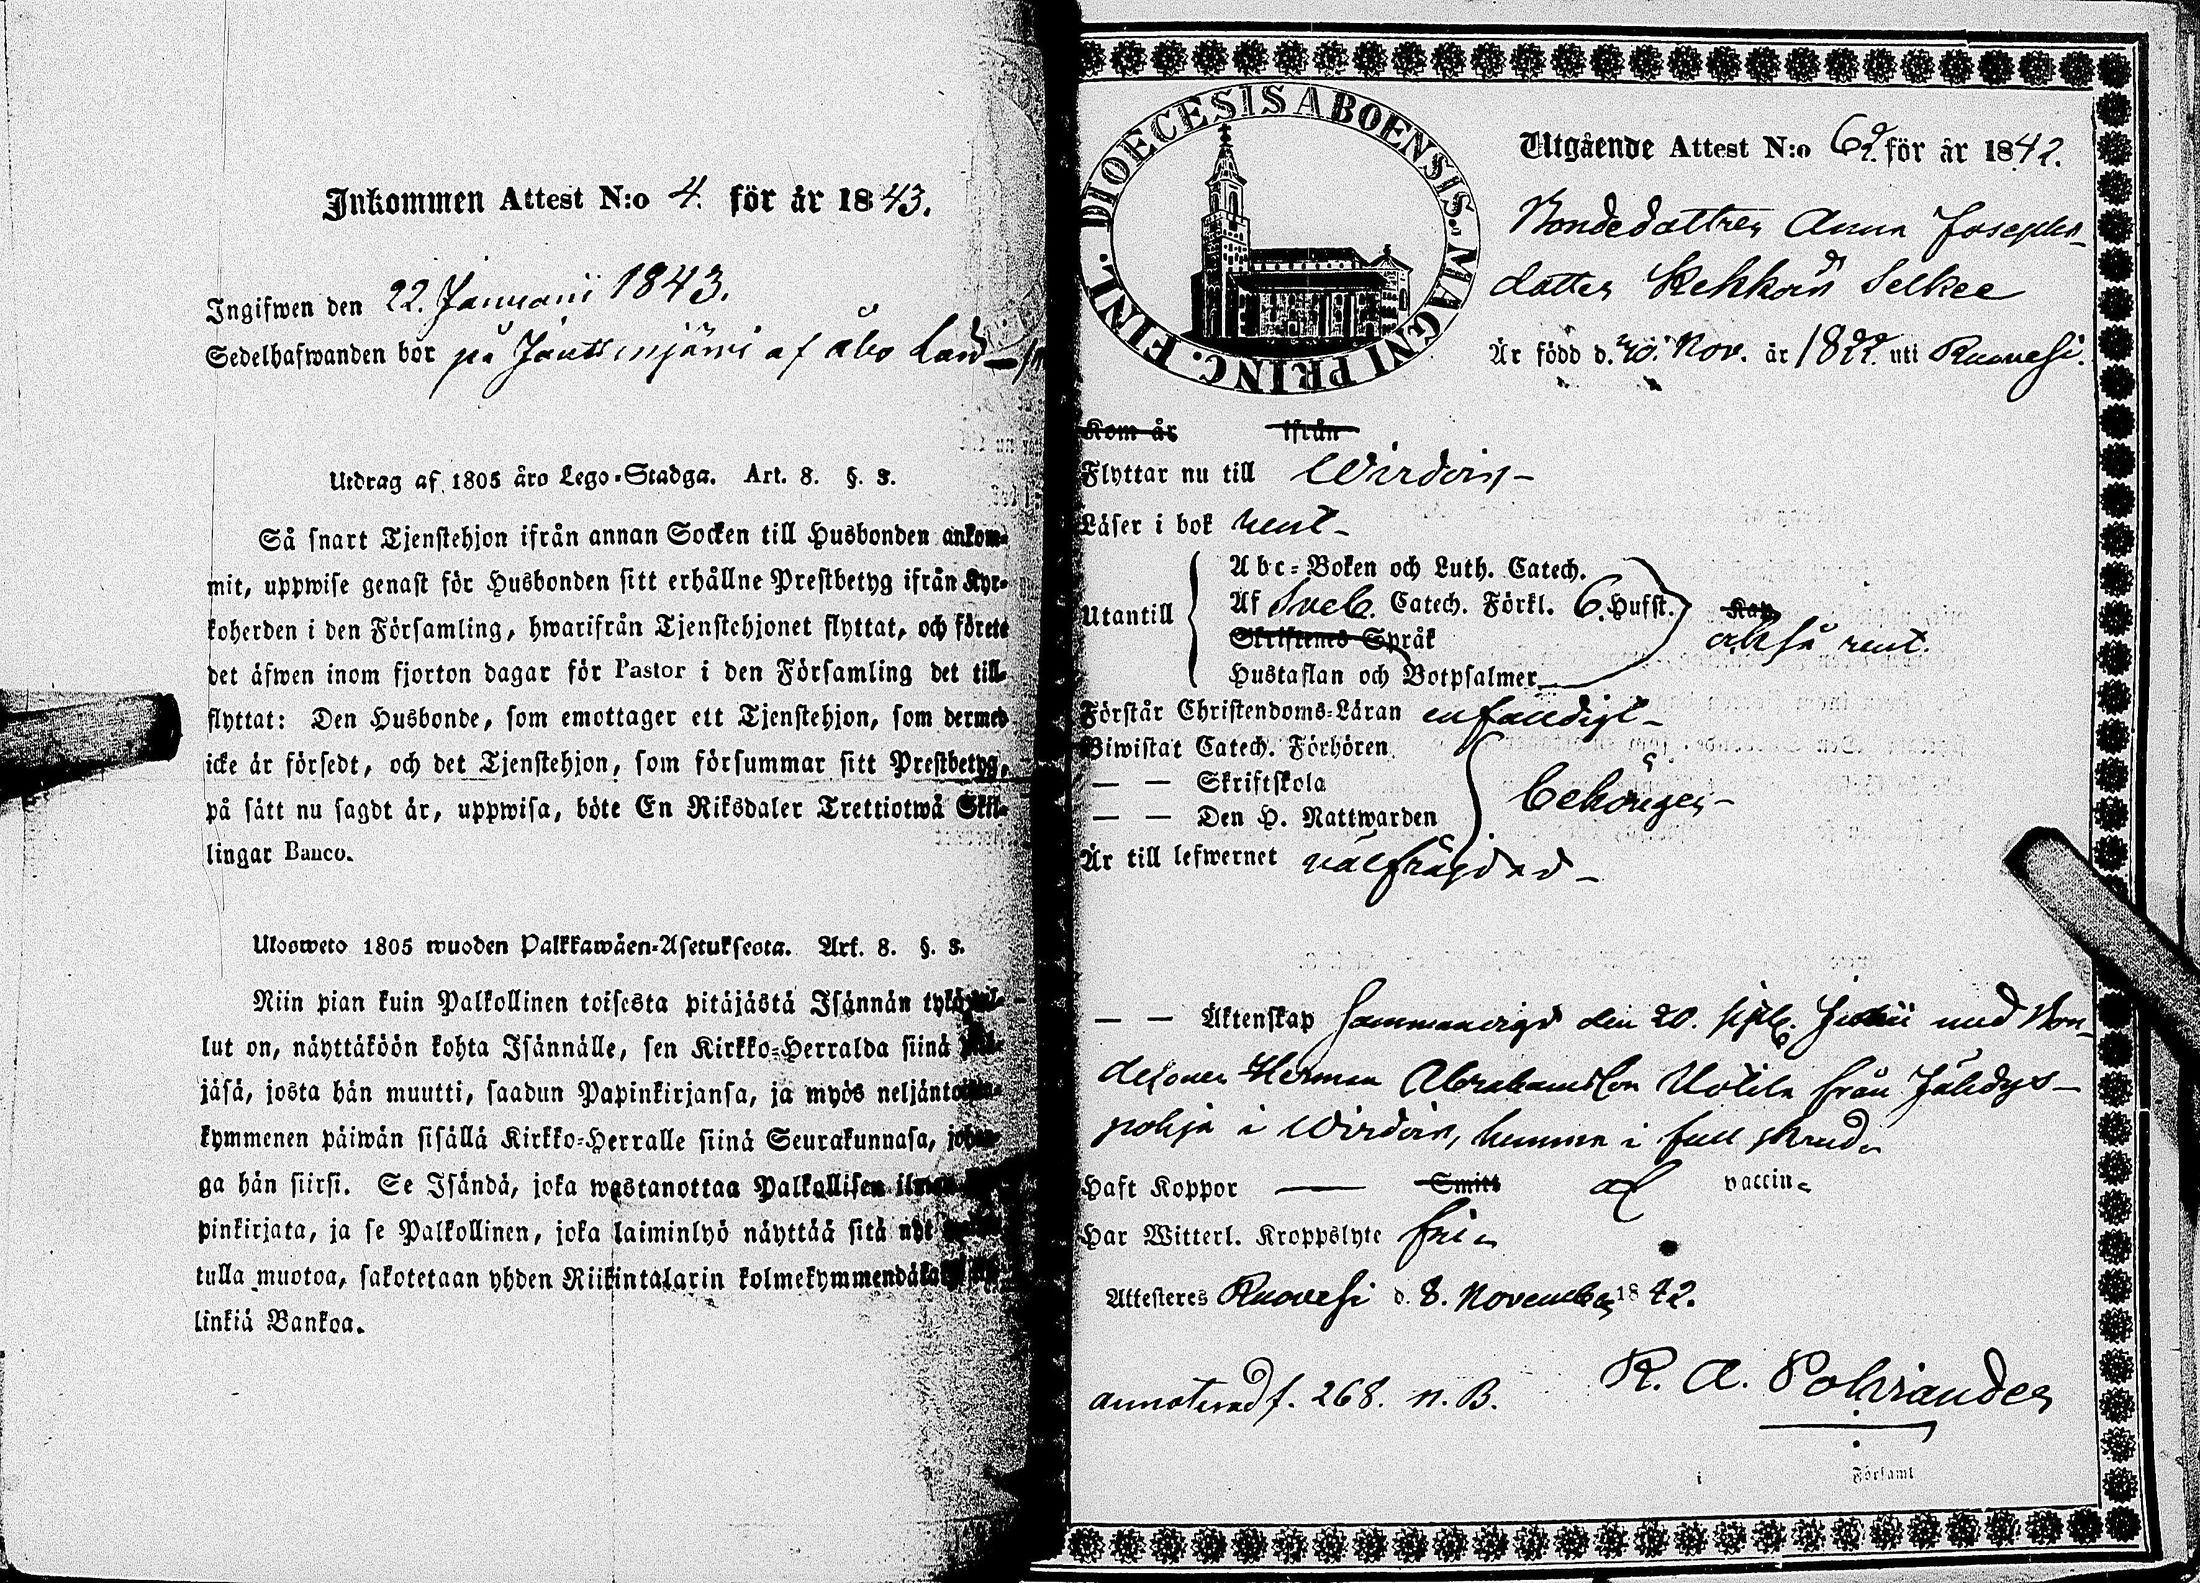 Inkommen Attest N:o 4. för år 1843.
Ingifwen den 22. Januarii 1843.
Sedelhafwanden bor på Jäuttinjärvi af Åbo Land
Utdrag af 1805 åro Lego-Stadga. Art. 8. §. 3.
Så snart Tjenstehjon ifrån annan Socken till Husbonden ankom-
mit, uppwise genast för Husbonden sitt erhållne Prestbetyg ifrån Kyr-
koherden i den Församling, hwarifrån Tjenstehjonet flyttat, och förete
det äfwen inom fjorton dagar för Pastor i den Församling det till-
flyttat: Den Husbonde, som emottager ett Tjenstehjon, som dermed
icke är försedt, och det Tjenstehjon, som försummar sitt Prestbetyg,
på sätt nu sagdt är, uppwisa, böte En Riksdaler Trettiotwå Skil-
lingar Banco.
Ulosweto 1805 wuoden Palkkawäen-Asetuksesta. Art. 8. §. 3.
Niin pian kuin Palkollinen toisesta pitäjästä Isännän
lut on, näyttäköön kohta Isännälle, sen Kirkko-Herralda siinä
jäsä, josta hän muutti, saadun Papinkirjansa, ja myös
kymmenen päiwän sisällä Kirkko-Herralle siinä Seurakunnasa,
ga hän siirsi. Se Isändä, joka wastanottaa Palkollisen
pinkirjata, ja se Palkollinen, joka laiminlyö näyttää sitä nyt
tulla muotoa, sakotetaan yhden Riikintalarin
linkiä Bankoa.
DIOECESIS ABOENSIS. MAGNI PRINC. FINL.
Utgående Attest N:o 62 för år 1842.
Bondedottren Anna Josephs-
dotter Kekkois Selkee
Är född d. 20. Nov. år 1822. uti Ruovesi.
Kom år ifrån
Flyttar nu till Wirdois
Läser i bok rent
Abc-Boken och Luth. Catech.
Utantill Af Sveb. Catech. Förkl. 6. Hufst. Kan
Skriftenes Språk också rent.
Hustaflan och Botpsalmer
Förstår Christendoms-Läran enfaldigt
Biwistat Catech. Förhören
— — Skriftskola behörigen
— — Den H. Nattwarden
Är till lefwernet välfrägdad
— — Äktenskap sammanvigd den 20. med Bon-
desonen Herman Abrahamsson Uotila från Jähdys-
pohja i Wirdois, hemma i full skrud
Haft Koppor — Smitt af vaccin
Har Witterl. Kroppslyte fri
Attesteres Ruovesi d. 8. November 1842.
annoterad f. 268. n. B. R. A. Polviander
i Församl